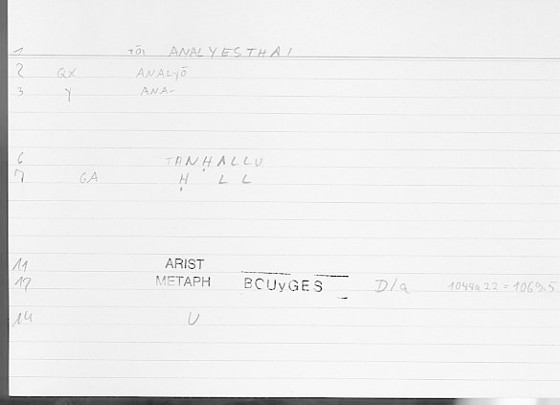 1 τōι ANALYESTHAI
2 QX ANALYŌ
3 Y ANA-
6 TANḤALLU
7 GA Ḥ L L
11 ARIST
12 METAPH BOUyGES D/a 1044a22 = 1069.5
14 U